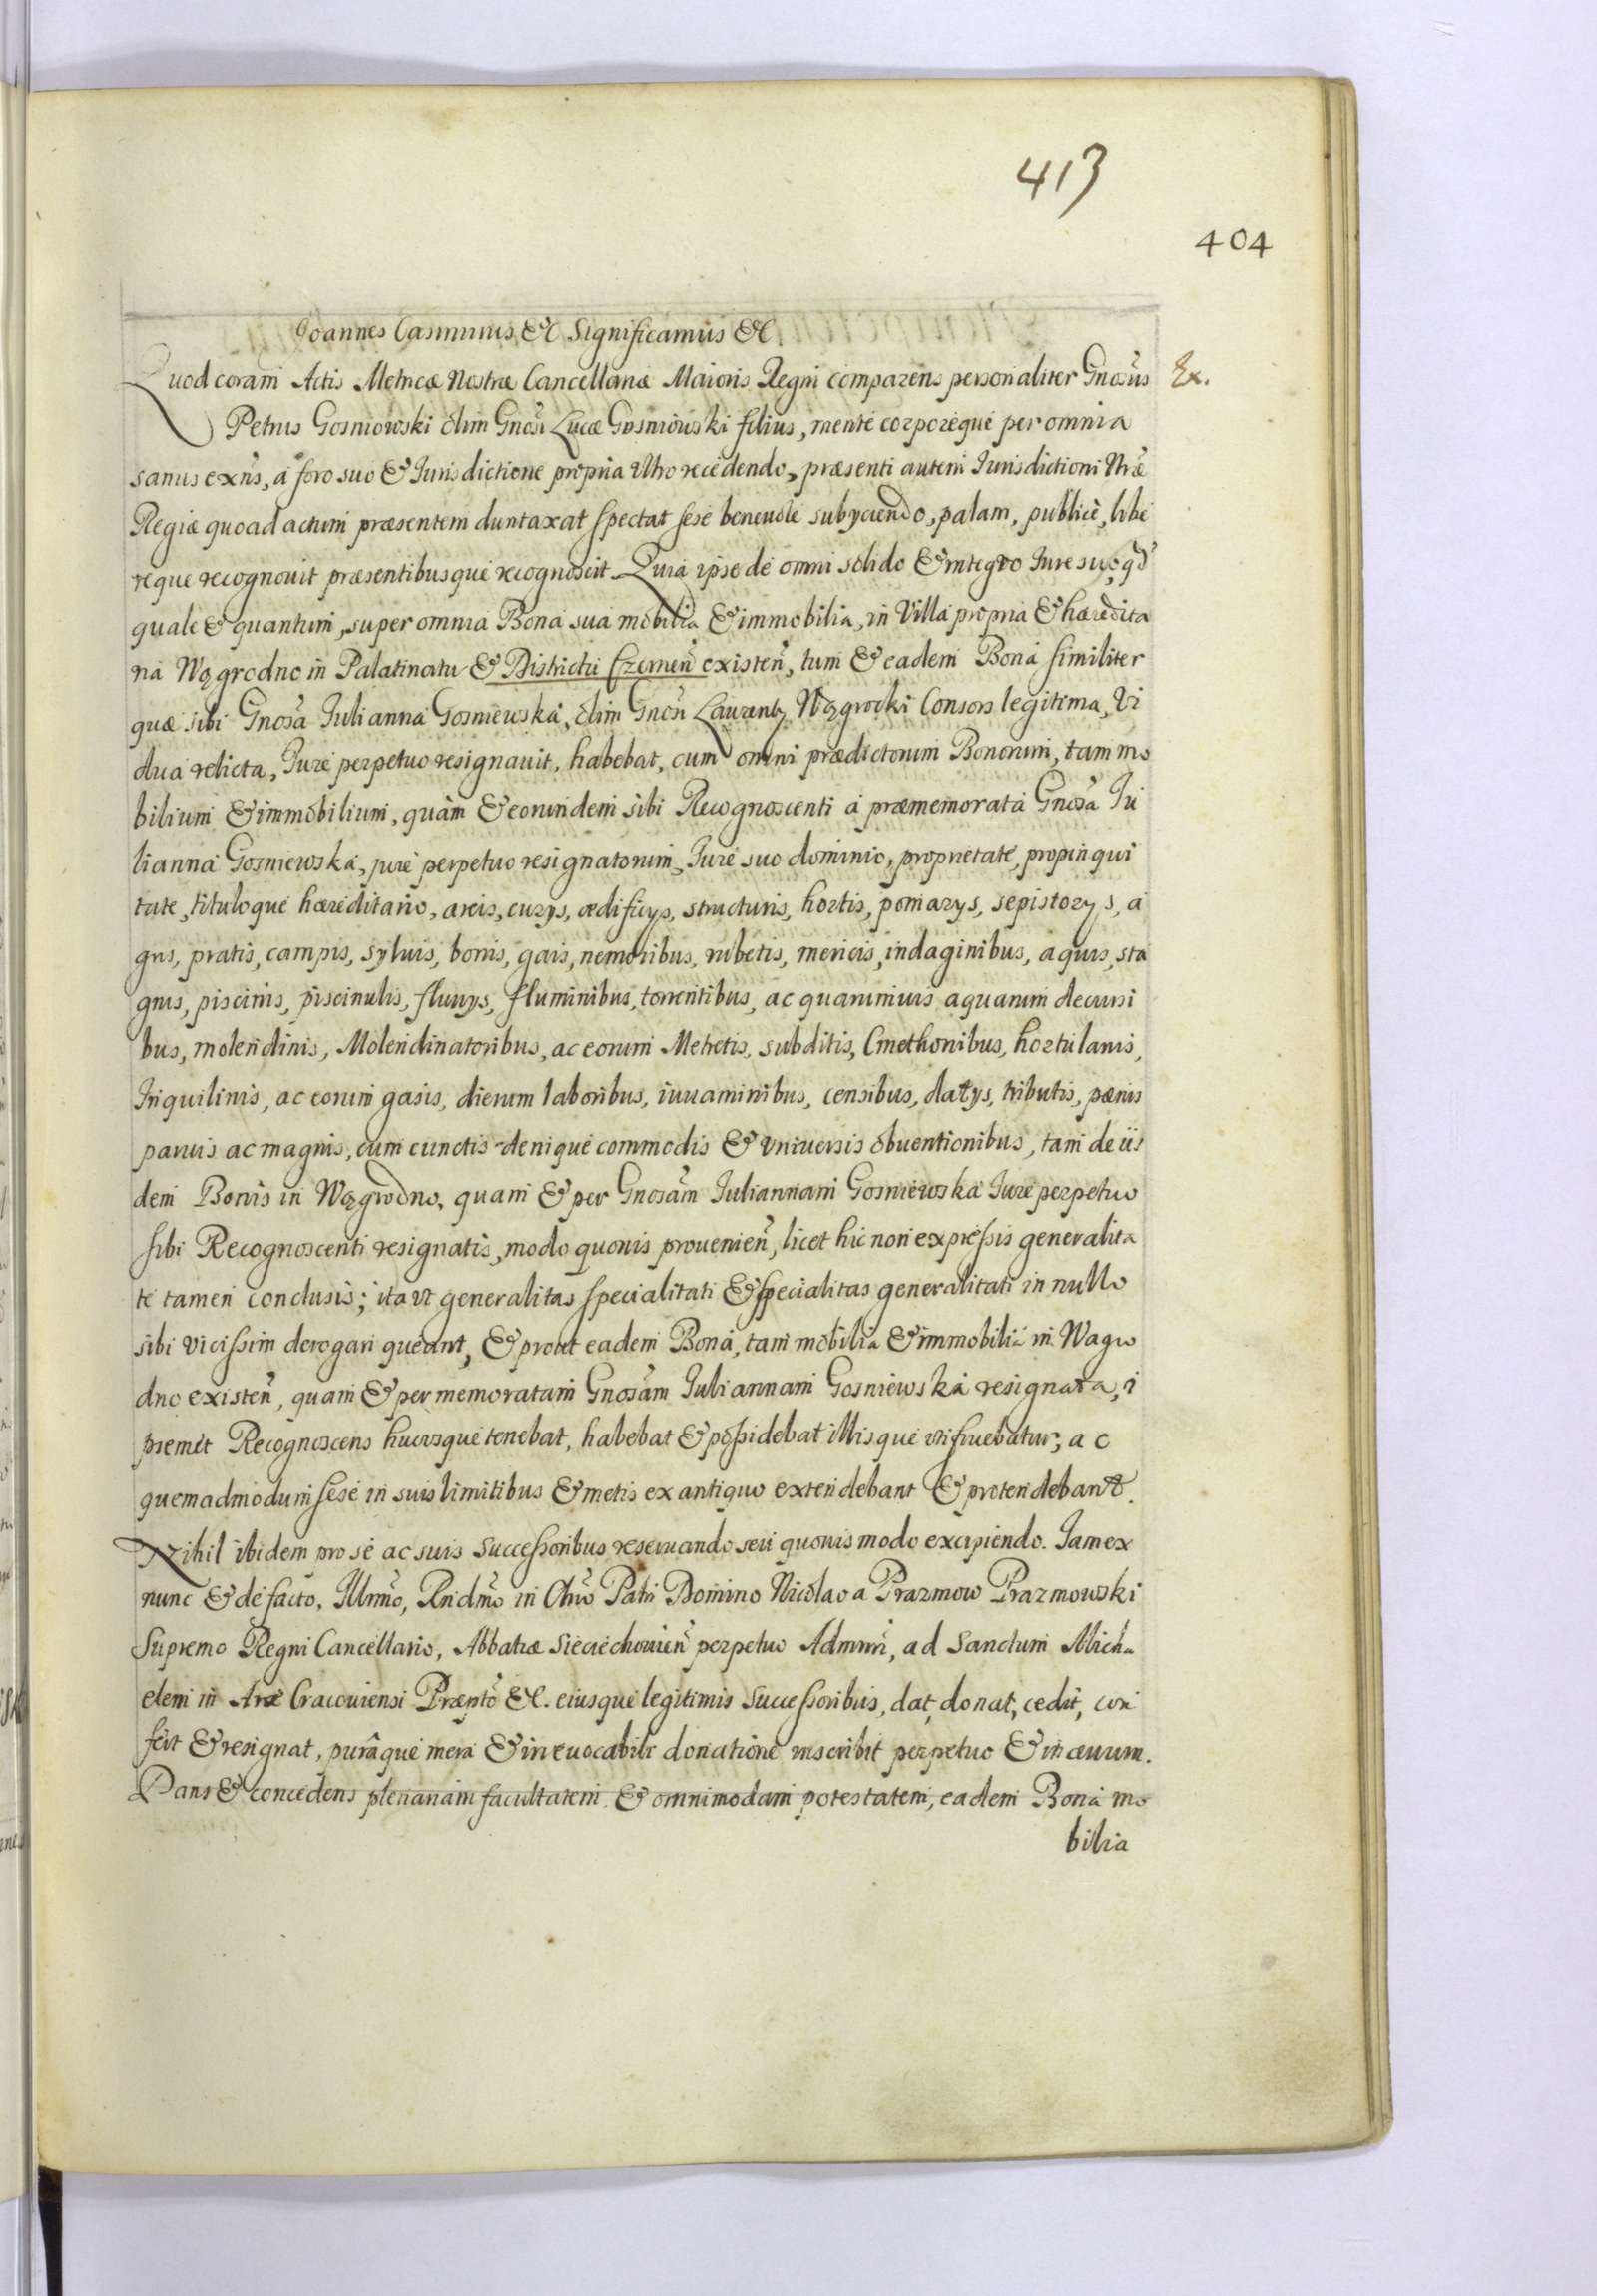 413
404
Joannes Casimirus &c Significamus &c
Quod coram Actis Metricæ Nostræ Cancellariæ Maioris Regni comparens personaliter Gnosus Ex.
Petrus Gosniowski olim Gnosi Lucæ Gosniowski filius, mente corporeque per omnia
sanus exns, a foro suo & Jurisdictione propria vltro recedendo, præsenti autem Jurisdictioni Nræ
Regiæ quoad actum præsentem duntaxat spectat sese beneuole subyciendo, palam, publicè, libe
reque recognouit præsentibusque recognoscit Quia ipse de omni solido & integro Jure suo, qd
quale & quantum, super omnia Bona sua mobilia & immobilia, in Villa propria & hæredita
ria Wągrodno in Palatinatu & Districtu Czernen existen, tum & eadem Bona similiter
quæ sibi Gnosa Julianna Gosniewska, olim Gnosi Laurenty Wągrocki Consors legitima, Vi
dua relicta, Jure perpetuo resignauit, habebat, cum omni prædictorum Bonorum, tam mo
bilium & immobilium, quàm & eorundem sibi Recognoscenti á præmemorata Gnosa Ju
lianna Gosniewska, jure perpetuo resignatorum, Jure suo dominio, proprietate, propinqui
tate, tituloque hæreditario, areis, curys, ædificys, structuris, hortis, pomarys, sepistorys, a
gris, pratis, campis, syluis, borris, gais, nemoribus, rubetis, mericis, indaginibus, aquis, sta
gnis, piscinis, piscinulis, fluuys, fluminibus, torrentibus, ac quarumuis aquarum decursi
bus, molendinis, Molendinatoribus, ac eorum Metretis, subditis, Cmethonibus, hortulanis,
Inquilinis, ac eorum gasis, dierum laboribus, iuuaminibus, censibus, datys, tributis, pænis
paruis ac magnis, cum cunctis denique commodis & vniuersis obuentionibus, tam de iis
dem Bonis in Wągrodno, quam & per Gnosam Juliannam Gosniewska Jure perpetuo
sibi Recognoscenti resignatis, modo quouis prouenien, licet hic non expressis generalita
te tamen conclusis; ita vt generalitas specialitati & specialitas generalitati in nullo
sibi vicissim derogari queant, & prout eadem Bona, tam mobilia & immobilia in Wagro
dno existen, quam & per memoratam Gnosam Juliannam Gosniewska resignata, i
psemet Recognoscens hucusque tenebat, habebat & possidebat illisque vtifruebatur, ac
quemadmodum sese in suis limitibus & metis ex antiquo extendebant & protendebant.
Nihil ibidem pro se ac suis successoribus reseruando seu quouis modo excipiendo. Jam ex
nunc & de facto, Illrmo, Rndmo in Chro Patri Domino Nicolao a Prazmow Prazmowski
Supremo Regni Cancellario, Abbatiæ Sieciechouien perpetuo Admnri, ad Sanctum Micha
elem in Arce Cracouiensi Præpto &c. eiusque legitimis successoribus, dat, donat, cedit, con
fert & resignat, purâque mera & irreuocabili donatione inscribit perpetuo & in æuum.
Dans & concedens plenariam facultatem & omnimodam potestatem, eadem Bona mo
bilia